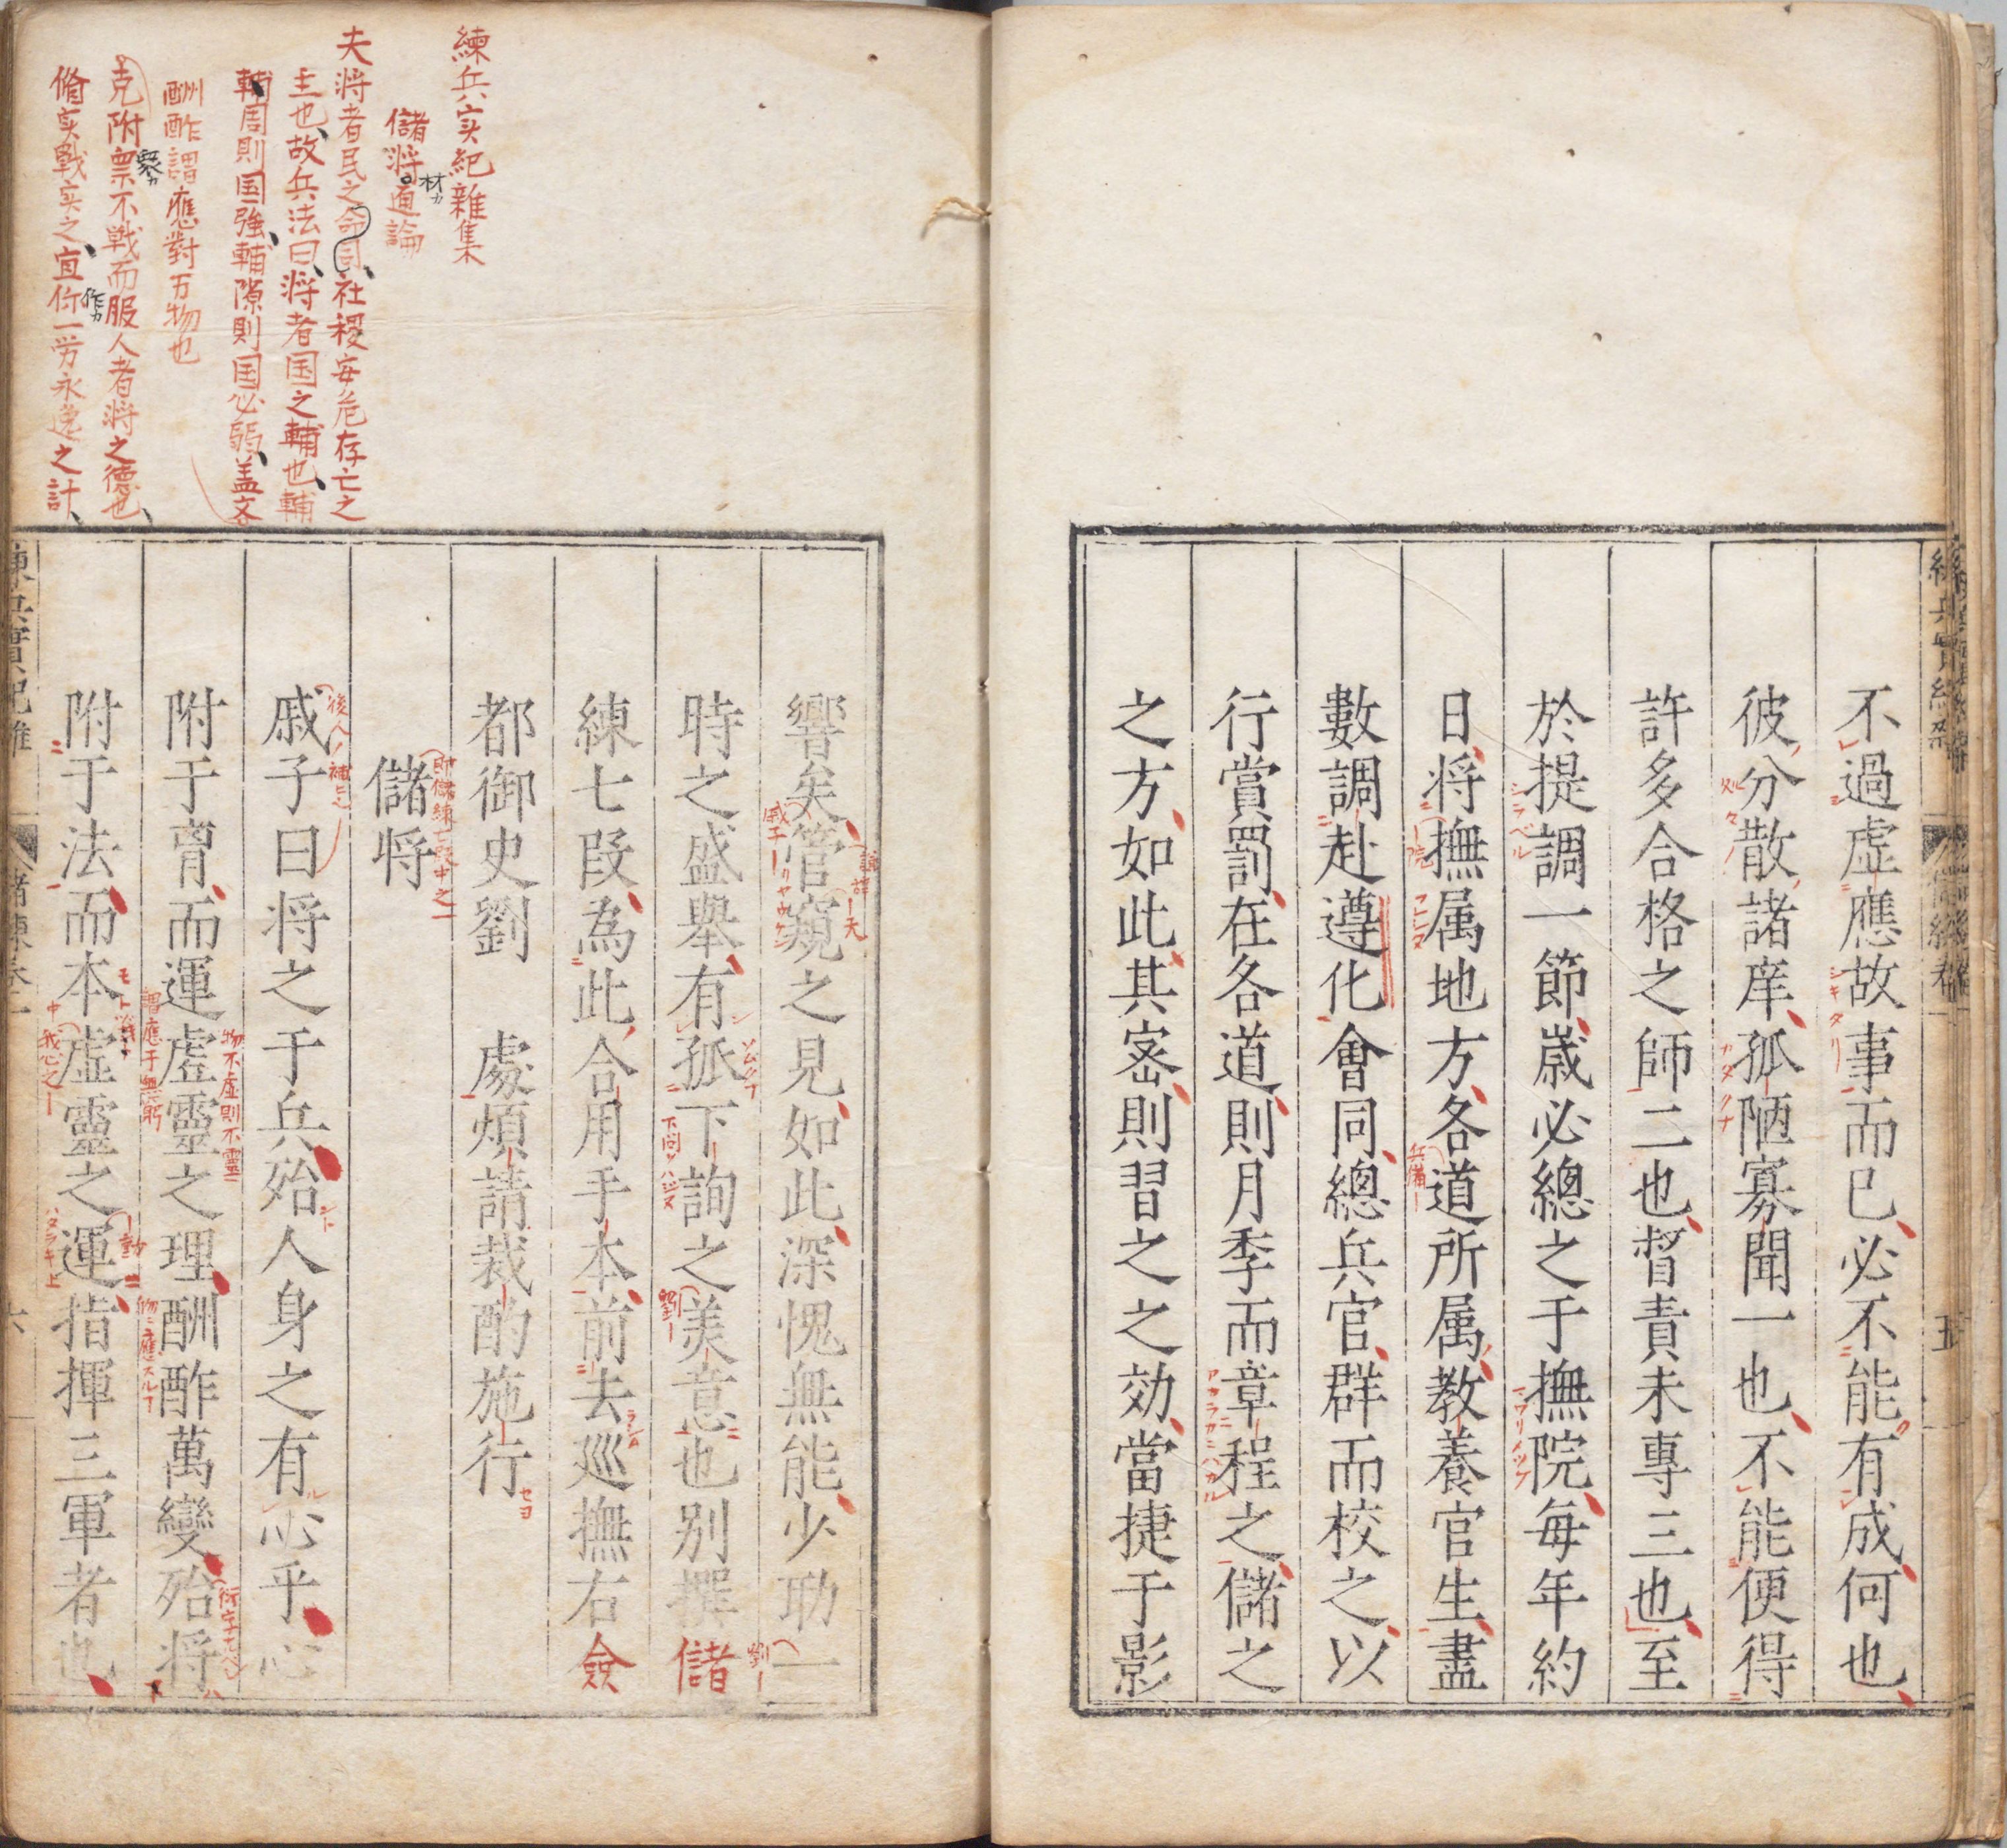 不過虛應故事而已必不能有成何也
彼分散諸庠孤陋寡聞一也不能便得
許多合格之師二也督責未專三也至
於提調一節歲必總之于撫院每年約
日將撫属地方各道所属教養官生盡
數調赴遵化會同總兵官群而校之以
行賞罰在各道則月季而章程之儲之
之方如此其密則習之之効當捷于影
練兵实紀雜集
儲将通論
材カ
夫将者民之命司社稷安危存亡之
主也故兵法曰将者国之輔也輔
輔周則国強輔隙則国必弱盖文
酬酢謂應對万物也
克附票不戦而服人者将之德也
衆カ
脩实戰实之宜作一労永逸之計
作カ
響矣管窺之見如此深愧無能少助一
時之盛舉有孤下詢之美意也别撰儲
練七段為此合用手本前去巡撫右僉
都御史劉 處煩請裁酌施行
儲将
即儲練七段中之一
戚子曰将之于兵殆人身之有心乎心
附于膏而運虛靈之理酬酢萬變殆将
物不虛則不靈
附于法而本虛靈之運指揮三軍者也